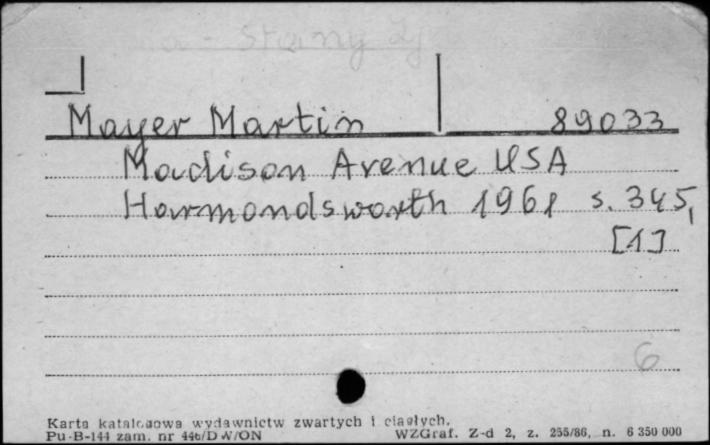 Stany Zj
Mayer Martin 89033
Madison Avenue USA
Harmondsworth 1961 s. 345,
[1]
6
Karta katalogowa wydawnictw zwartych i ciągłych.
Pu-B-144 zam. nr 446/DW/ON WZGraf. Z-d 2, z. 255/86, n. 6 350 000